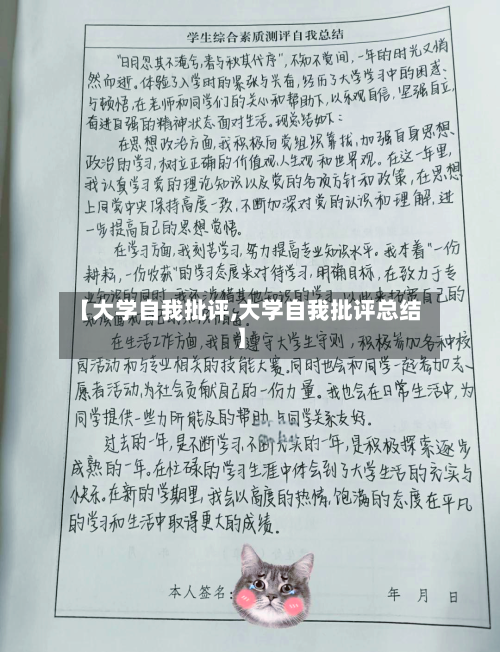 学生综合素质测评自我总结
"日月忽其不淹兮,春与秋其代序",不知不觉间,一年的时光又悄
然而逝。体验了入学时的紧张与兴奋,经历了大学学习中的困惑
与顿悟,在老师和同学们的关心和帮助下,以乐观自信,坚强自立,
奋进自强的精神状态面对生活。现总结如下:
在思想政治方面,我积极向党组织靠拢,加强自身思想
政治的学习,树立正确的价值观,人生观和世界观。在这一年里,
我认真学习党的理论知识以及党的各项方针和政策,在思想
上同党中央保持高度一致,不断加深对党的认识和理解,进
一步提高自己的思想觉悟。
在学习方面,我刻苦学习,努力提高专业知识水平。我本着"一份
耕耘,一份收获"的学习态度来对待学习,明确目标,在致力于专
业知识的同时,我还涉猎其他知识的学习,以此来拓宽自己的
【大学自我批评,大学自我批评总结
】
在生活工作方面,我自觉遵守大学生守则,积极参加各种校
园活动和与专业相关的技能大赛。同时也会和同学一起参加志
愿者活动,为社会贡献自己的一份力量。我也会在日常生活中,为
同学提供一些力所能及的帮助,与同学关系友好。
过去的一年,是不断学习,不断充实的一年,是积极探索逐步
成熟的一年。在忙碌的学习生涯中体会到了大学生活的充实与
快乐。在新的学期里,我会以高度的热情,饱满的态度在平凡
的学习和生活中取得更大的成绩。
本人签名: 年 月 日